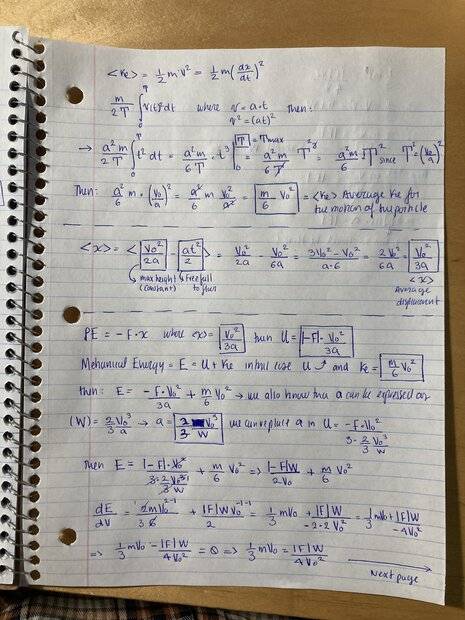 <Ke> = 1/2 m v² = 1/2 m (dx/dt)²
m/2T ∫₀ᵀ v(t)² dt where v = a·t then:
v² = (at)²
→ a²m/2T ∫₀ᵀ t² dt = a²m/6T · t³ |₀ᵀ = Tmax = a²m/6T T³ = a²m/6 T² since T² = (v₀/a)²
Then: a²/6 m · (v₀/a)² = a²/6 m v₀²/a² = m/6 v₀² = <Ke> Average Ke for
the motion of the particle
<x> = < v₀²/2a - at²/2 > = v₀²/2a - v₀²/6a = 3v₀² - v₀²/a·6 = 2v₀²/6a = v₀²/3a
max height (constant) Free fall <x>
Average
displacement
PE = -F·x where <x> = v₀²/3a then U = |-F|·v₀²/3a
Mechanical Energy = E = U + Ke use U and Ke = m/6 v₀²
then: E = -F·v₀²/3a + m/6 v₀² → we also know that a can be expressed as
(W) = 2/3 v₀³/a → a = 2/3 v₀³/W we can replace a in U = -F·v₀²/3·2/3 v₀³/W
Then E = |-F|·v₀²/3·2/3 v₀³/W + m/6 v₀² => |-F|W/2v₀ + m/6 v₀²
dE/dV = 2mv₀²⁻¹/36 + |F|W v₀⁻¹⁻¹/2 = 1/3 mv₀ + |F|W/-2·2v₀² = 1/3 mv₀ + |F|W/-4v₀²
=> 1/3 mv₀ - |F|W/4v₀² = 0 => 1/3 mv₀ = |F|W/4v₀²
Next page